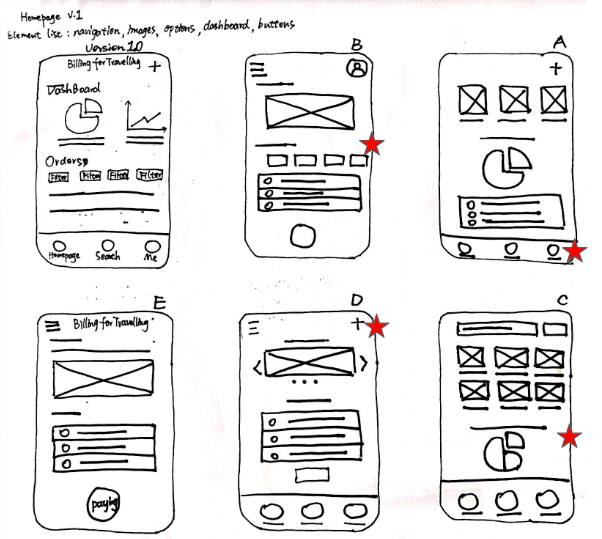 Homepage V.1
Element list : navigation, images, options, dashboard, buttons
Version 1.0
Billing for Travelling +
DashBoard
Orders
Filter Filter Filter Filter
Homepage Search Me
B
A
+
E
Billing for Travelling
paying
D
+
C